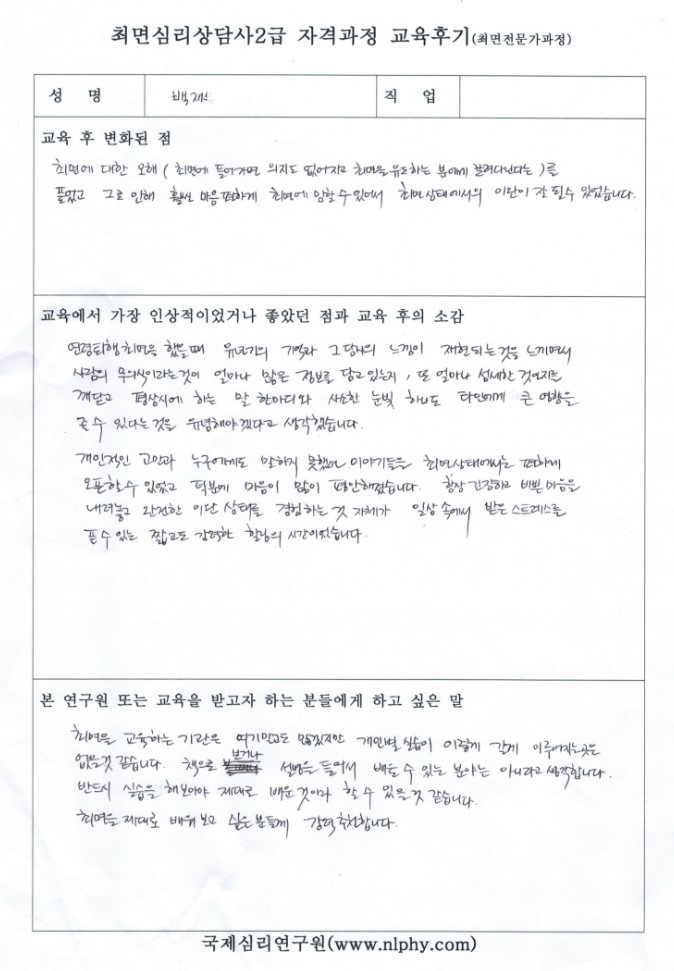 최면심리상담사2급 자격과정 교육후기(최면전문가과정)
성 명 백재 직 업
교육 후 변화된 점
최면에 대한 오해 ( 최면에 들어가면 의지도 없어지고 최면을 유도하는 분에게 끌려다닌다는 )를
풀었고 그로 인해 훨씬 마음 편하게 최면에 임할 수 있어서 최면상태에서의 이완이 잘 될수 있었습니다.
교육에서 가장 인상적이었거나 좋았던 점과 교육 후의 소감
연령퇴행 최면을 했을때 유년기의 기억과 그 당시의 느낌이 재현되는것을 느끼면서
사람의 무의식이라는것이 얼마나 많은 정보를 담고 있는지, 또 얼마나 섬세한 것인지를
깨닫고 평상시에 하는 말 한마디와 사소한 눈빛 하나도 타인에게 큰 영향을
줄 수 있다는것을 유념해야겠다고 생각했습니다.
개인적인 고민과 누구에게도 말하지 못했던 이야기들을 최면상태에서는 편하게
오픈할 수 있었고 덕분에 마음이 많이 편안해졌습니다. 항상 긴장하고 바쁜 마음을
내려놓고 완전한 이완 상태를 경험하는 것 자체가 일상 속에서 받은 스트레스를
풀 수 있는 짧고도 강력한 힐링의 시간이었습니다.
본 연구원 또는 교육을 받고자 하는 분들에게 하고 싶은 말
최면을 교육하는 기관은 여기말고도 많겠지만 개인별 실습이 이렇게 길게 이루어지는곳은
없을것 같습니다. 책으로 보거나 설명을 들어서 배울 수 있는 분야는 아니라고 생각합니다.
반드시 실습을 해보아야 제대로 배운 것이라 할 수 있을것 같습니다.
최면을 제대로 배워보고 싶은 분들께 강력추천합니다.
국제심리연구원(www.nlphy.com)